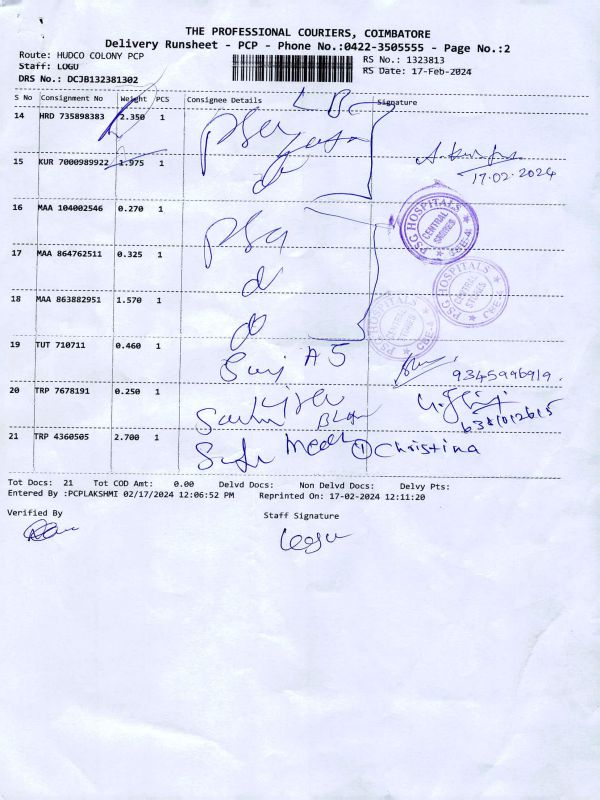 THE PROFESSIONAL COURIERS, COIMBATORE
Delivery Runsheet - PCP - Phone No.:0422-3505555 - Page No.:2
Route: HUDCO COLONY PCP
RS No.: 1323813
Staff: LOGU
RS Date: 17-Feb-2024
DRS No.: DCJB132381302
S No Consignment No Weight PCS Consignee Details Signature
14 HRD 735898383 2.350 1
15 KUR 7000989922 1.975 1
17.02.2024
16 MAA 104002546 0.270 1
PSG HOSPITALS CENTRAL STORES CBE-4
17 MAA 864762511 0.325 1
PSG HOSPITALS CENTRAL STORES CBE-4
18 MAA 863882951 1.570 1
HOSPITALS CENTRAL STORES CBE-4
19 TUT 710711 0.460 1
9345996919.
20 TRP 7678191 0.250 1
21 TRP 4360505 2.700 1 ① Christina
Tot Docs: 21 Tot COD Amt: 0.00 Delvd Docs: Non Delvd Docs: Delvy Pts:
Entered By :PCPLAKSHMI 02/17/2024 12:06:52 PM Reprinted On: 17-02-2024 12:11:20
Verified By
Staff Signature
Logu